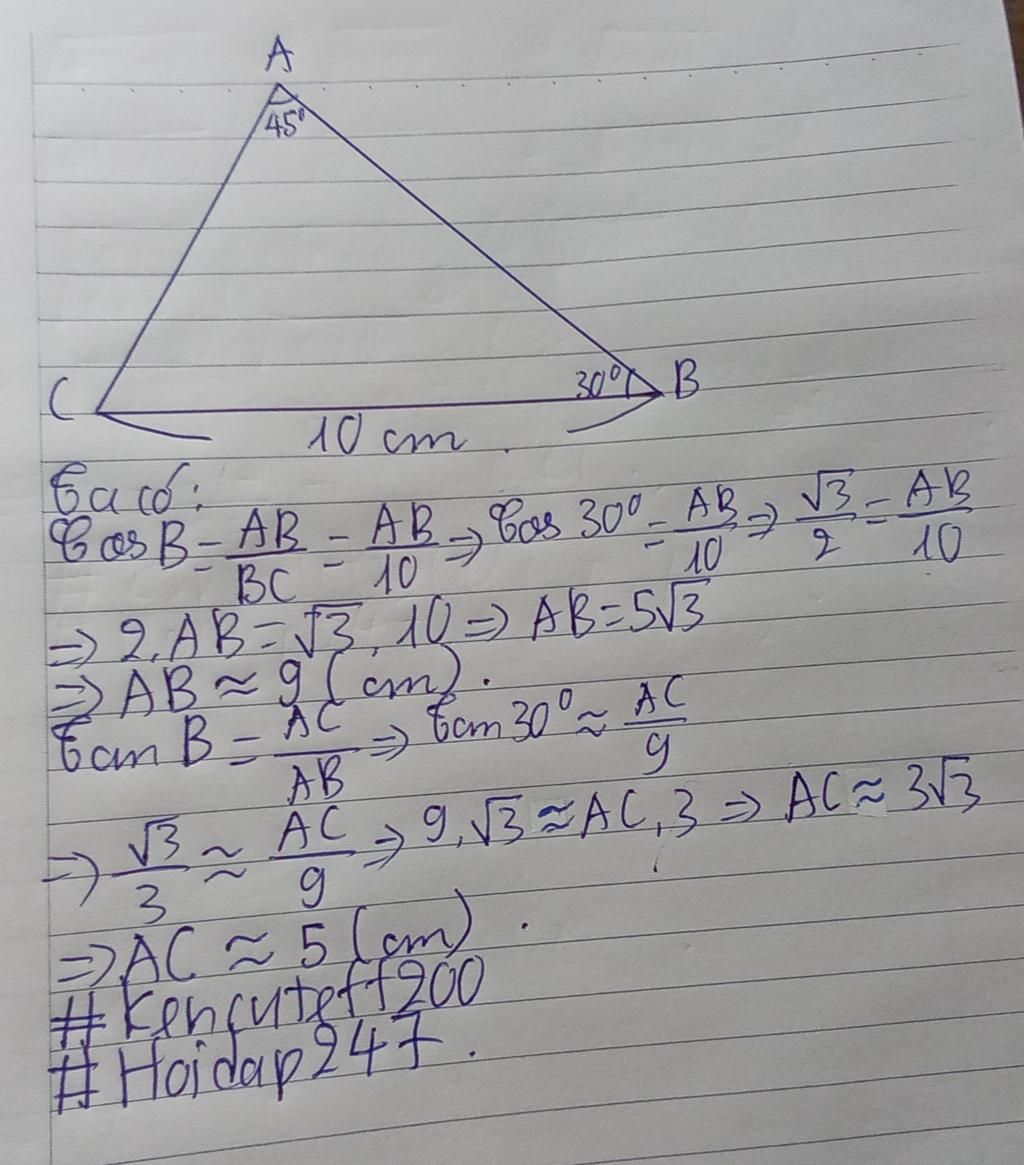 A
45°
C
30°
B
10 cm
Ta có:
Cos B = AB/BC = AB/10 => Cos 30° = AB/10 => √3/2 = AB/10
=> 2.AB = √3.10 => AB = 5√3
=> AB ≈ 9 (cm).
Tan B = AC/AB => Tan 30° ≈ AC/9
=> √3/3 ≈ AC/9 => 9.√3 ≈ AC.3 => AC ≈ 3√3
=> AC ≈ 5 (cm).
#Kencuteff200
#Hoidap247.